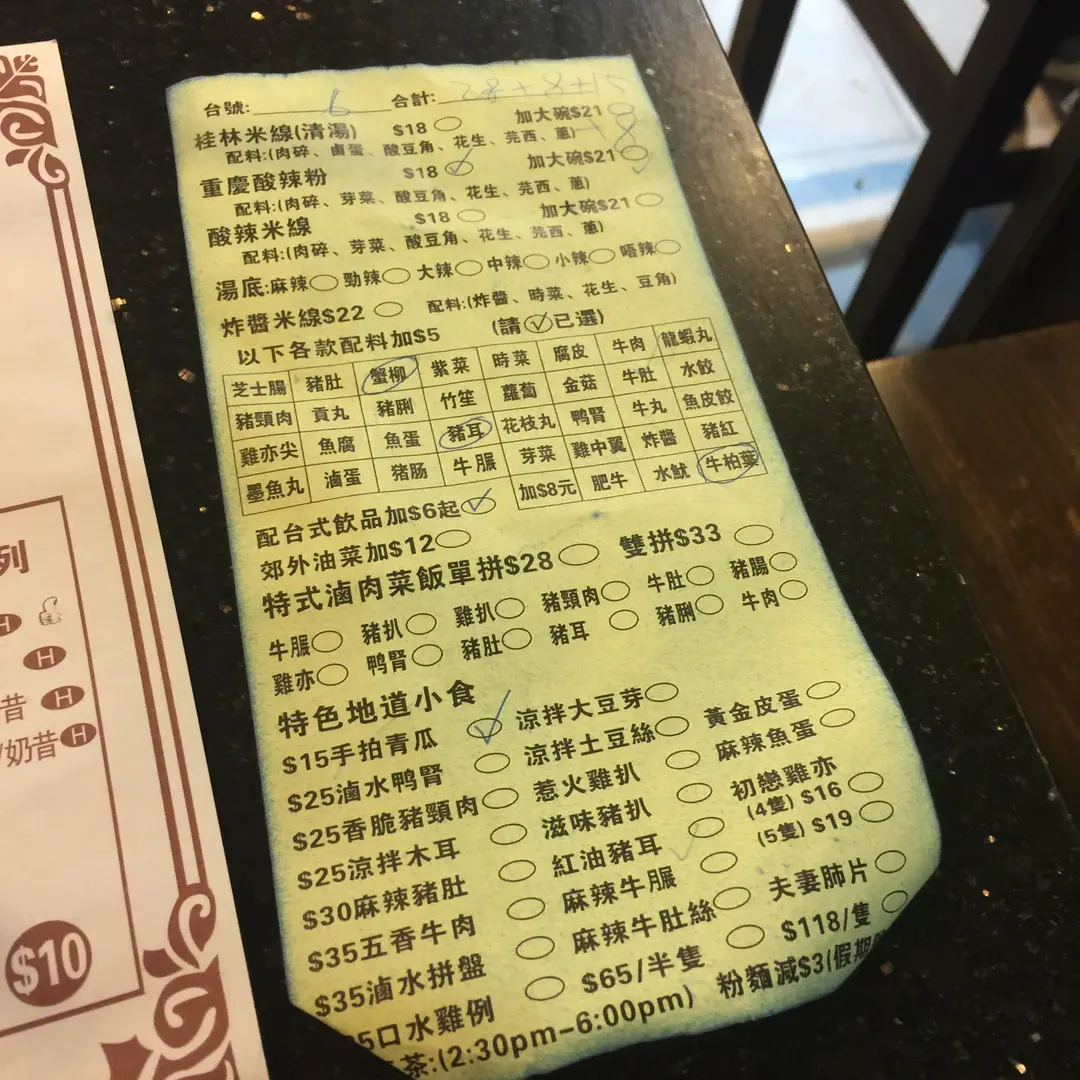 台號: 6 合計: 28+8+15
桂林米線(清湯) $18 加大碗$21
配料:(肉碎、鹵蛋、酸豆角、花生、芫西、蔥) +8
重慶酸辣粉 $18 加大碗$21
配料:(肉碎、芽菜、酸豆角、花生、芫西、蔥)
酸辣米線 $18 加大碗$21
配料:(肉碎、芽菜、酸豆角、花生、芫西、蔥)
湯底:麻辣 勁辣 大辣 中辣 小辣 唔辣
炸醬米線$22 配料:(炸醬、時菜、花生、豆角)
以下各款配料加$5 (請✓已選)
芝士腸 豬肚 蟹柳 紫菜 時菜 腐皮 牛肉 龍蝦丸
豬頸肉 貢丸 豬脷 竹笙 蘿蔔 金菇 牛肚 水餃
雞亦尖 魚腐 魚蛋 豬耳 花枝丸 鴨腎 牛丸 魚皮餃
墨魚丸 滷蛋 豬肠 牛𦟌 芽菜 雞中翼 炸醬 豬紅
加$8元 肥牛 水魷 牛柏葉
配台式飲品加$6起
郊外油菜加$12
特式滷肉菜飯單拼$28 雙拼$33
牛𦟌 豬扒 雞扒 豬頸肉 牛肚 豬腸
雞亦 鸭腎 豬肚 豬耳 豬脷 牛肉
特色地道小食
$15手拍青瓜 涼拌大豆芽 黃金皮蛋
$25滷水鸭腎 涼拌土豆絲 麻辣魚蛋
$25香脆豬頸肉 惹火雞扒 初戀雞亦
$25涼拌木耳 滋味豬扒 (4隻) $16
$30麻辣豬肚 紅油豬耳 (5隻) $19
$35五香牛肉 麻辣牛𦟌 夫妻肺片
$35滷水拼盤 麻辣牛肚絲 $118/隻
5口水雞例 $65/半隻
茶:(2:30pm-6:00pm) 粉麵減$3(假期
列
H
H
昔 H
/奶昔 H
$10